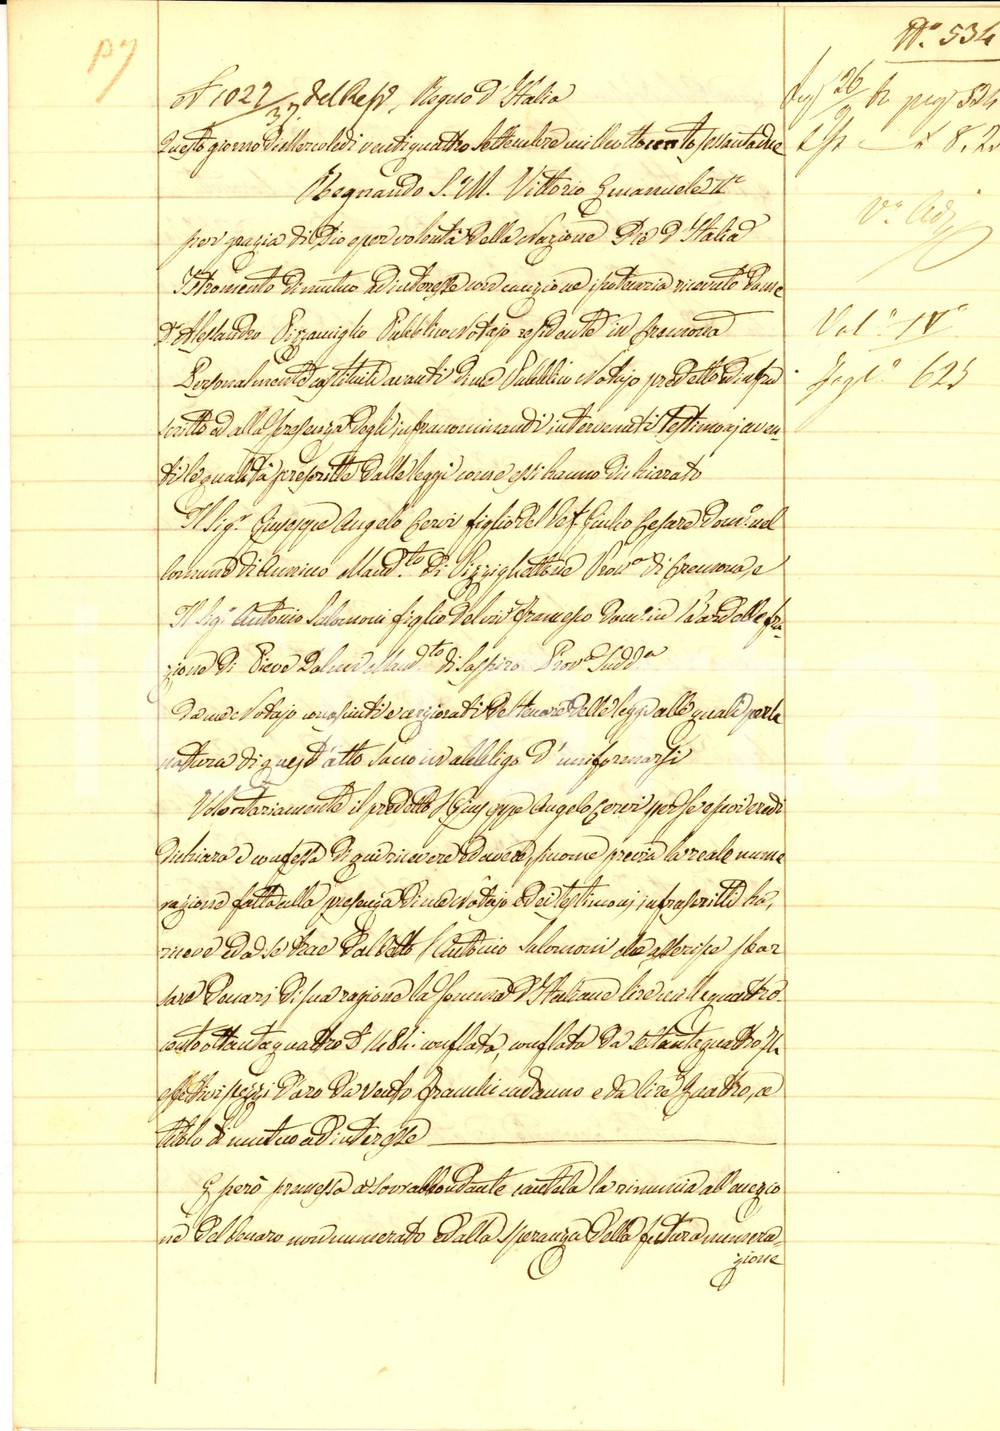 P7
N.° 534
N 1027/37 del Rep.° Regno d'Italia
Questo giorno di Mercoledì ventiquattro Settembre mille ottocento sessantadue
Regnando S. M. Vittorio Emanuele II°
per grazia di Dio e per volontà della Nazione Re d'Italia
Istromento di mutuo ad interesse con cauzione ipotecaria ricevuto da me
D.r Alessandro Pizzamiglio Pubblico Notajo residente in Cremona
Personalmente costituiti avanti di me Pubblico Notajo predetto ed infra
scritto ed alla presenza degli infranominandi intervenuti Testimonj aven-
ti le qualità prescritte dalle leggi come essi hanno dichiarato
Il Sig.r Giuseppe Angelo Cervi figlio del def. Giulio Cesare dom.° nel
Comune di Mand.to di Pizzighettone Prov.a di Cremona, e
Il Sig.r Antonio Salomoni figlio del viv. Francesco Dom.° in fra-
zione di Pieve Mand.to di Sospiro Prov.a Sudd.a
da me Notajo conosciuti e cerziorati del tenore delle leggi alle quali per la
natura di quest'atto sono in obbligo d'uniformarsi
Volontariamente il predetto S. Giuseppe Angelo Cervi per se e suoi eredi
dichiara e confessa di qui ricevere ed avere, siccome previa la reale nume
razione fatta alla presenza di me Notajo e dei testimonj infrascritti ha,
riceve ed a se trae dal detto S. Antonio Salomoni che asserisce sbor
sare denari di sua ragione la somma d'Italiane lire mille quattro
cento ottantaquattro £ 1484. conflata, conflata da settantaquattro 74
effettivi pezzi d'oro da venti franchi cadauno e da lire quattro, a
titolo di mutuo ad interesse
E però premessa a sovrabbondante cautela la rinuncia all'eccezio
ne del denaro non numerato e dalla speranza della futura numera-
zione
26/9 pag 534
£ 8.25
V.° Adj
Vol.° IV°
Fogl.° 625